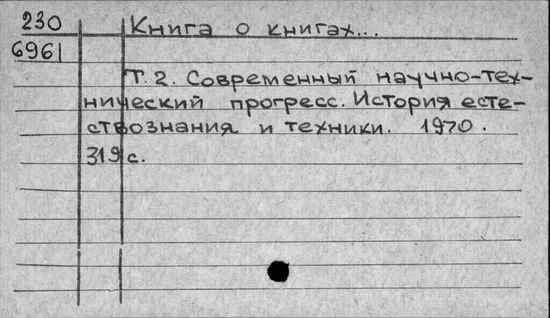 230 Книга о книгах...
6961
Т. 2. Современный научно-тех-
нический прогресс. История есте-
ствознания и техники. 1970.
319 с.